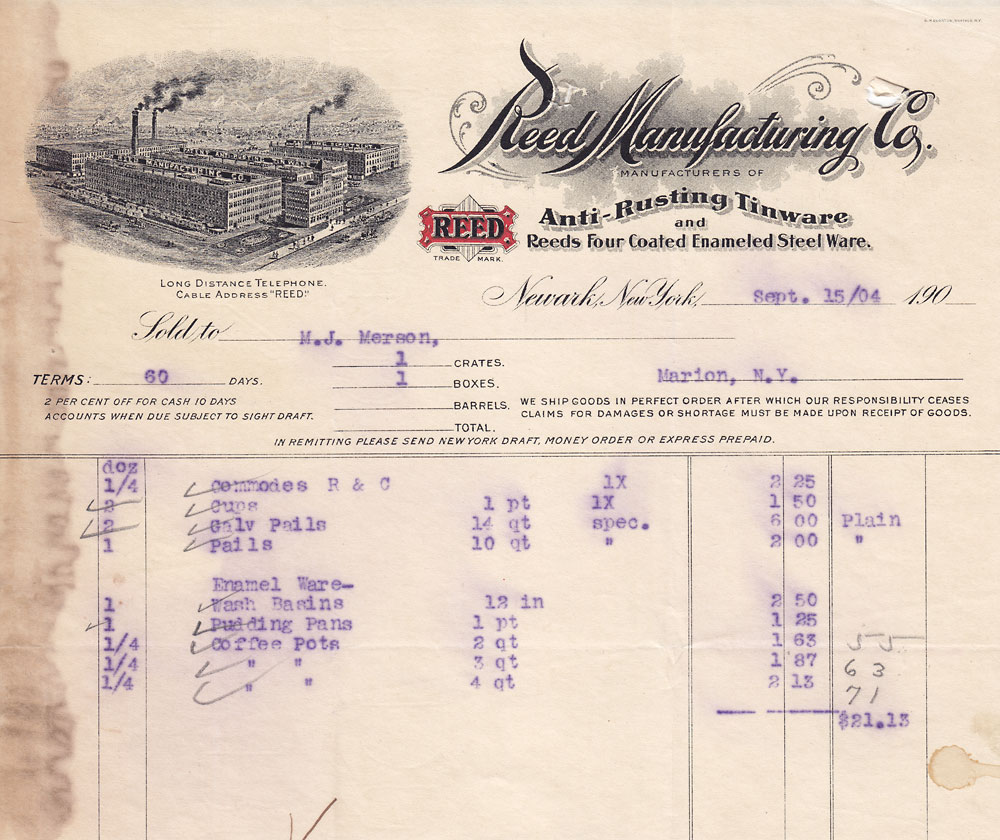 Reed Manufacturing Co.
MANUFACTURERS OF
Anti-Rusting Tinware
and
Reeds Four Coated Enameled Steel Ware.
REED
TRADE MARK.
LONG DISTANCE TELEPHONE.
CABLE ADDRESS "REED."
Newark, New York, Sept. 15/04 190
Sold to M.J. Merson,
1 CRATES.
TERMS: 60 DAYS. 1 BOXES. Marion, N.Y.
2 PER CENT OFF FOR CASH 10 DAYS
ACCOUNTS WHEN DUE SUBJECT TO SIGHT DRAFT.
BARRELS.
TOTAL.
WE SHIP GOODS IN PERFECT ORDER AFTER WHICH OUR RESPONSIBILITY CEASES
CLAIMS FOR DAMAGES OR SHORTAGE MUST BE MADE UPON RECEIPT OF GOODS.
IN REMITTING PLEASE SEND NEW YORK DRAFT, MONEY ORDER OR EXPRESS PREPAID.
doz
1/4 Commodes R & C 1X 2 25
2 Cups 1 pt 1X 1 50
2 Galv Pails 14 qt spec. 6 00 Plain
1 Pails 10 qt " 2 00 "
Enamel Ware-
1 Wash Basins 12 in 2 50
1 Pudding Pans 1 pt 1 25
1/4 Coffee Pots 2 qt 1 63 55
1/4 " " 3 qt 1 87 63
1/4 " " 4 qt 2 13 71
$21.13